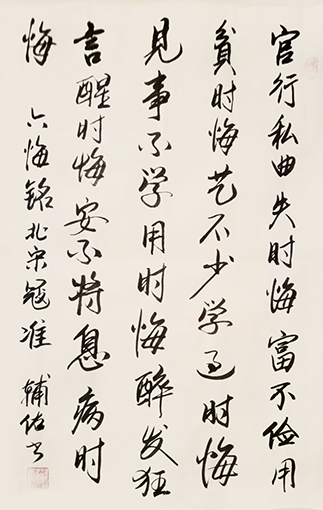 官行私曲失时悔富不俭用
贫时悔艺不少学过时悔
见事不学用时悔醉发狂
言醒时悔安不将息病时
悔
六悔铭北宋寇准 辅佑书